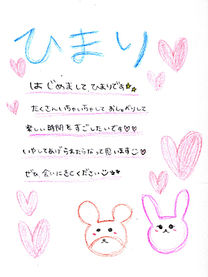 ひまり
はじめまして ひまりです
たくさんいちゃいちゃして おしゃべりして
楽しい時間をすごしたいです♡♡
いやしてあげられたらなって思います♡♡
ぜひ 会いにきてください